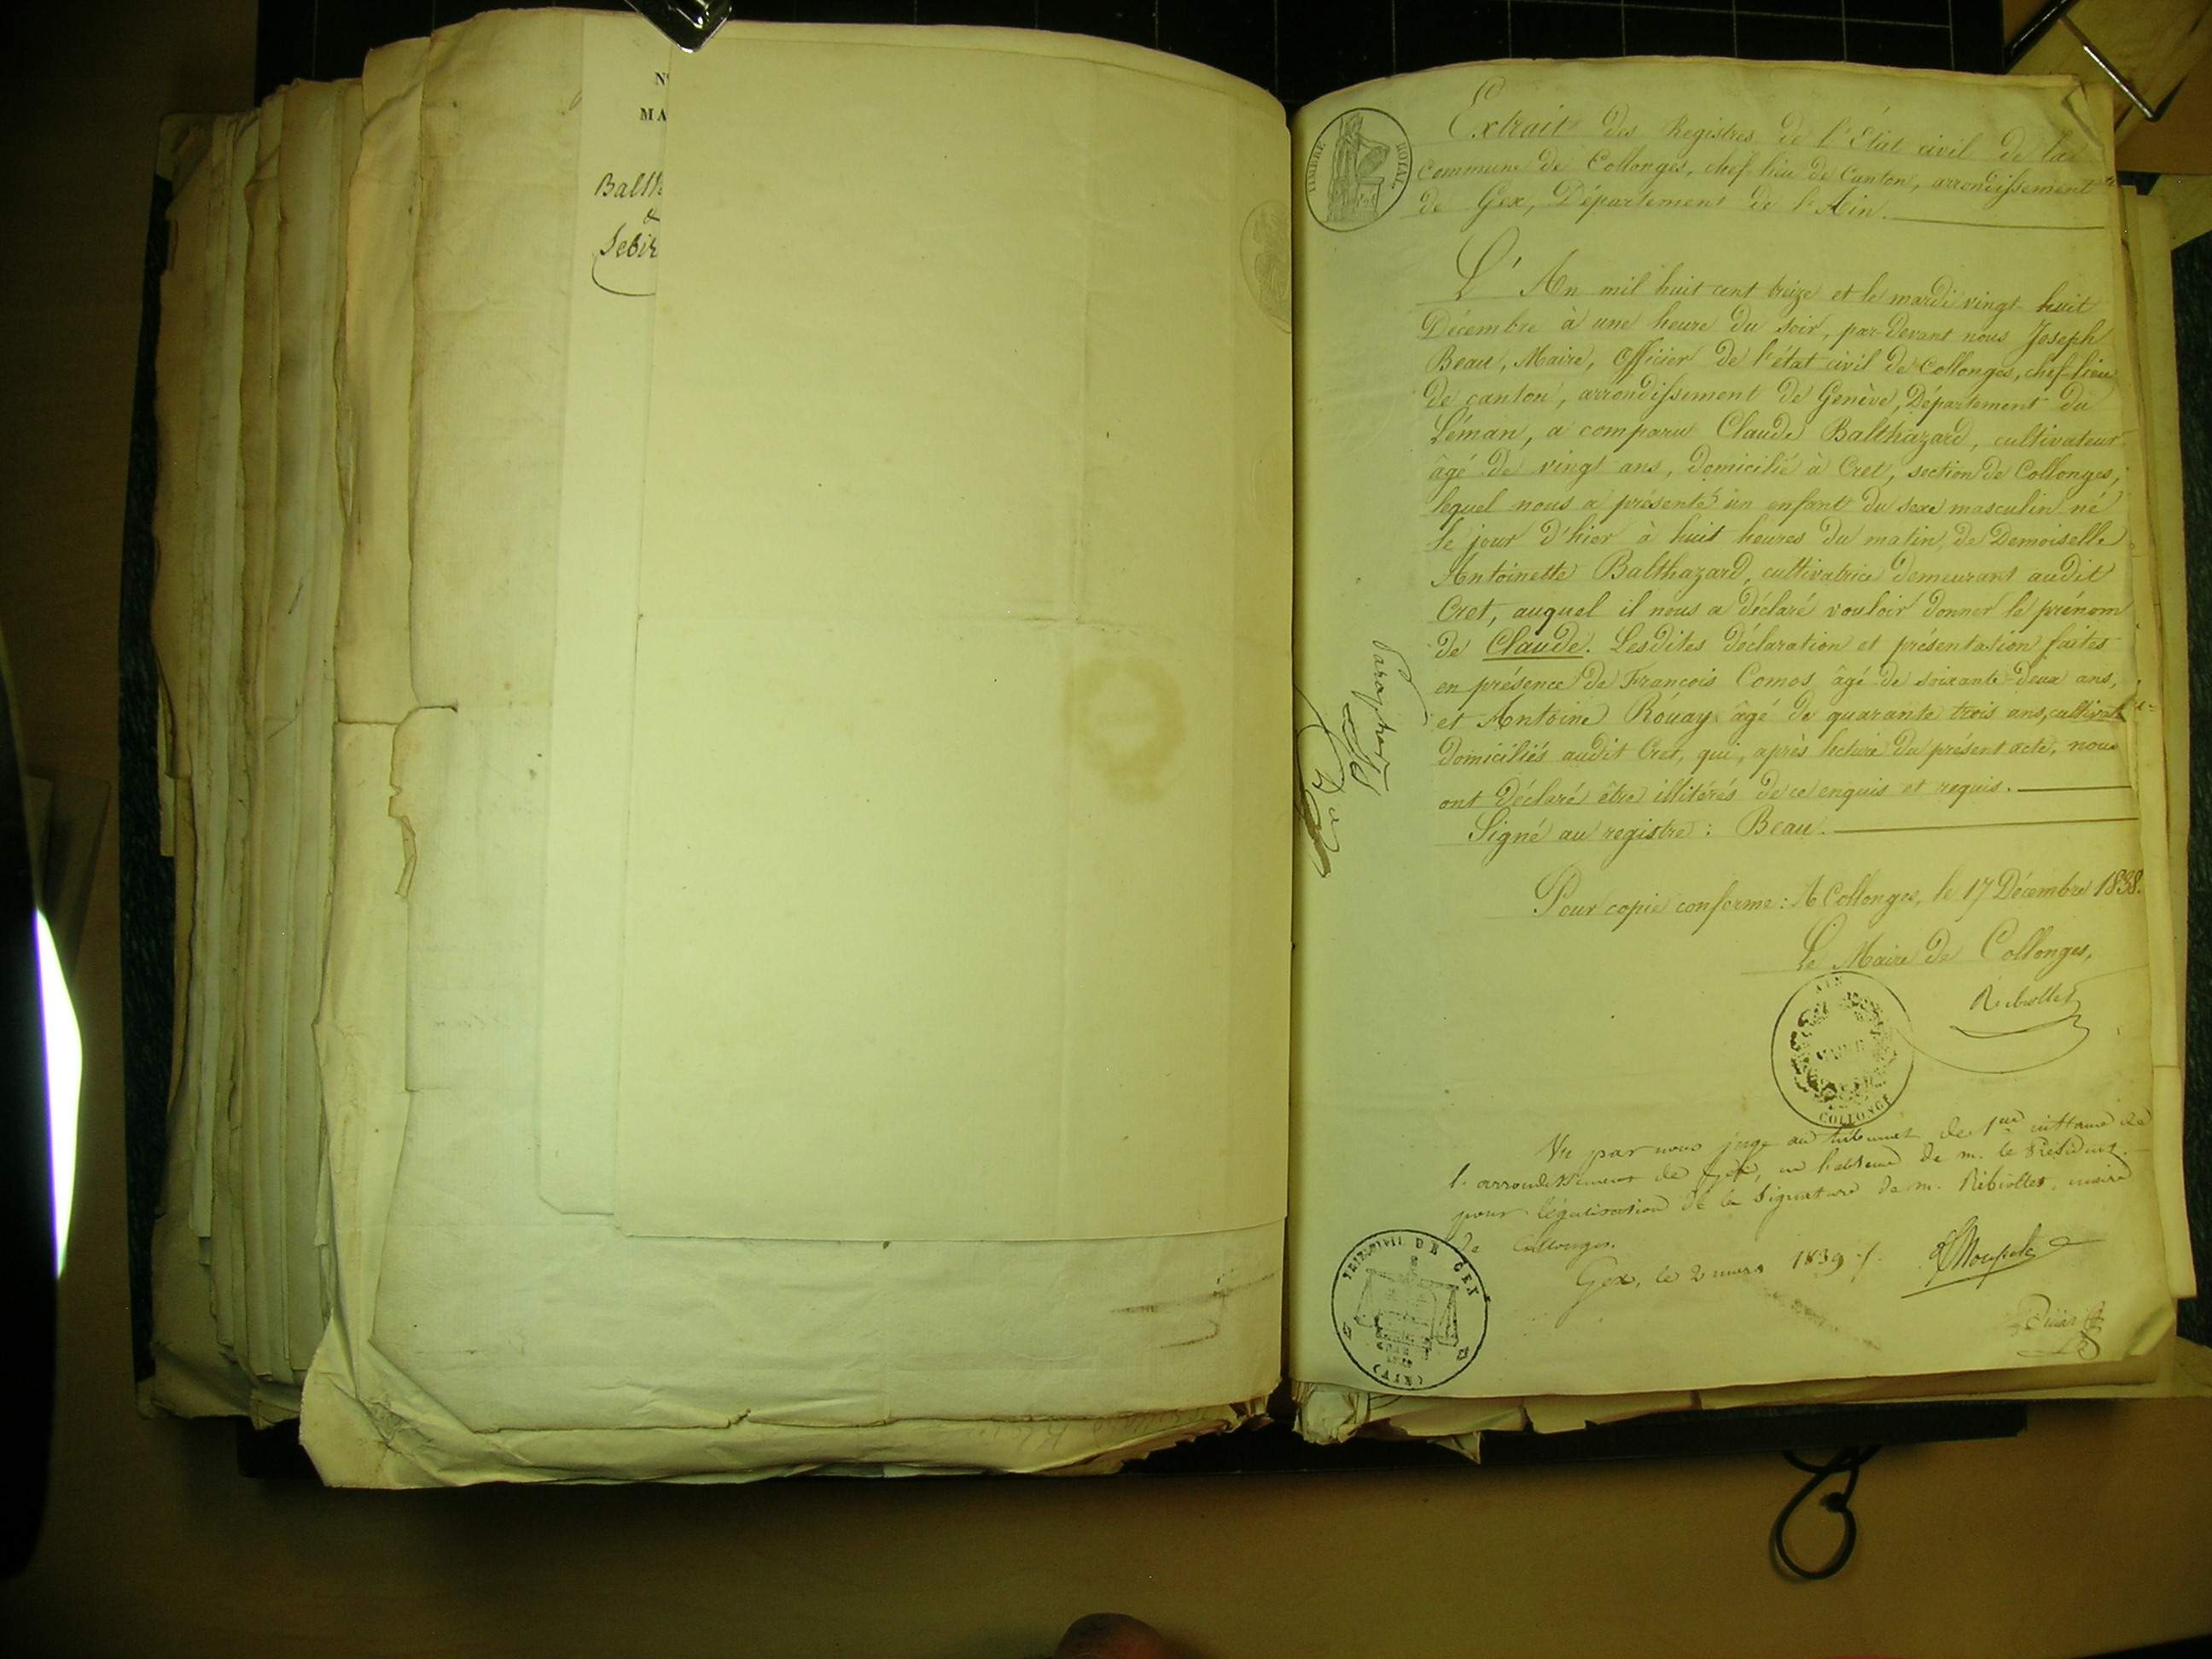 N
MA
Balth
&
Sebir
TIMBRE ROYAL
Extrait des Registres de l'État civil de la
commune de Collonges, chef lieu de Canton, arrondissement
de Gex, Département de l'Ain.
L'An mil huit cent treize et le mardi vingt-huit
Décembre à une heure du soir, par-devant nous Joseph
Beau, Maire, Officier de l'état civil de Collonges, chef-lieu
de canton, arrondissement de Genève, Département du
Léman, a comparu Claude Balthazard, cultivateur
âgé de vingt ans, domicilié à Cret, section de Collonges,
lequel nous a présenté un enfant du sexe masculin né
le jour d'hier à huit heures du matin, de Demoiselle
Antoinette Balthazard, cultivatrice demeurant audit
Cret, auquel il nous a déclaré vouloir donner le prénom
de Claude. Lesdites déclaration et présentation faites
en présence de François Comos âgé de soixante-deux ans,
et Antoine Rouay âgé de quarante trois ans, cultivat
domiciliés audit Cret, qui, après lecture du présent acte, nous
ont déclaré être illitérés de ce enquis et requis.
Signé au registre : Beau.
Pour copie conforme : A Collonges, le 17 Décembre 1838.
Le Maire de Collonges,
Ribiollet
AIN
MAIRIE
COLLONGE
Vu par nous juge au tribunal de 1ère instance de
l'arrondissement de Gex, en l'absence de m. le Président
pour légalisation de la signature de m. Ribiollet, maire
de Collonges.
Gex, le 2 mars 1839
TRIB. CIVIL DE GEX
(AIN)